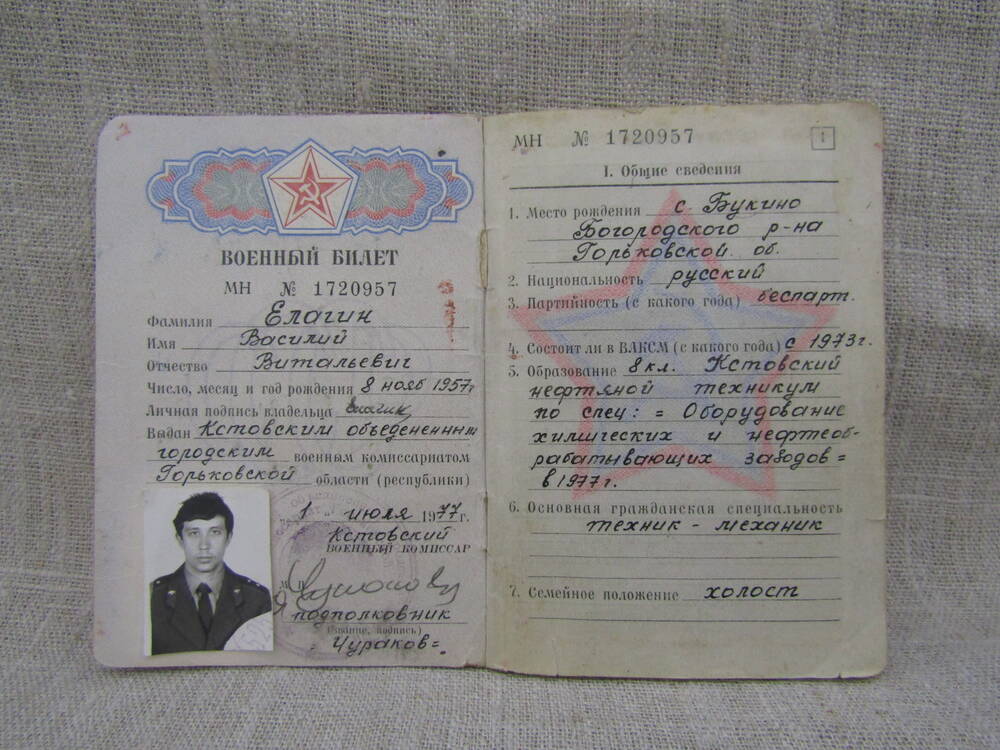 ВОЕННЫЙ БИЛЕТ
МН № 1720957
Фамилия Елагин
Имя Василий
Отчество Витальевич
Число, месяц и год рождения 8 нояб 1957г
Личная подпись владельца Елагин
Выдан Кстовским объедененным
городским военным комиссариатом
Горьковской области (республики)
1 " июля 1977 г.
Кстовский
ВОЕННЫЙ КОМИССАР
М П
подполковник
(звание, подпись)
= Чураков =
МН № 1720957
1
I. Общие сведения
1. Место рождения с. Букино
Богородского р-на
Горьковской об.
2. Национальность русский
3. Партийность (с какого года) беспарт.
4. Состоит ли в ВЛКСМ (с какого года) с 1973г.
5. Образование 8 кл. Кстовский
нефтяной техникум
по спец: = Оборудование
химических и нефтеоб-
рабатывающих заводов =
в 1977г.
6. Основная гражданская специальность
техник - механик
7. Семейное положение холост